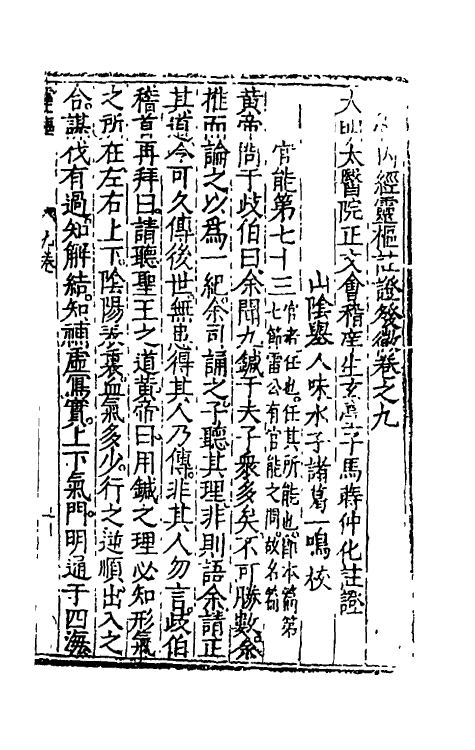 內經靈樞註證發微卷之九
大明太醫院正文會稽庠生玄臺子馬蒔仲化註證
山陰舉人味水子諸葛一鳴校
官能第七十三官者任也任其所能也即本篇第七節雷公有官能之問故名篇
黃帝問于歧伯曰余聞九鍼于夫子衆多矣不可勝數余
推而論之以爲一紀余司誦之子聽其理非則語余請正
其道令可久傳後世無患得其人乃傳非其人勿言歧伯
稽首再拜曰請聽聖王之道黃帝曰用鍼之理必知形氣
之所在左右上下陰陽表裏血氣多少行之逆順出入之
合謀伐有過知解結知補虛瀉實上下氣門明通于四海
靈樞
九卷
一